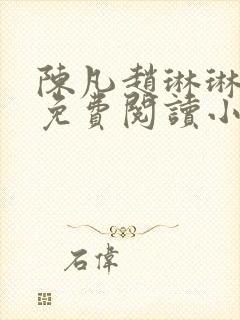 陳凡趙琳琳
免費閱讀小
石偉